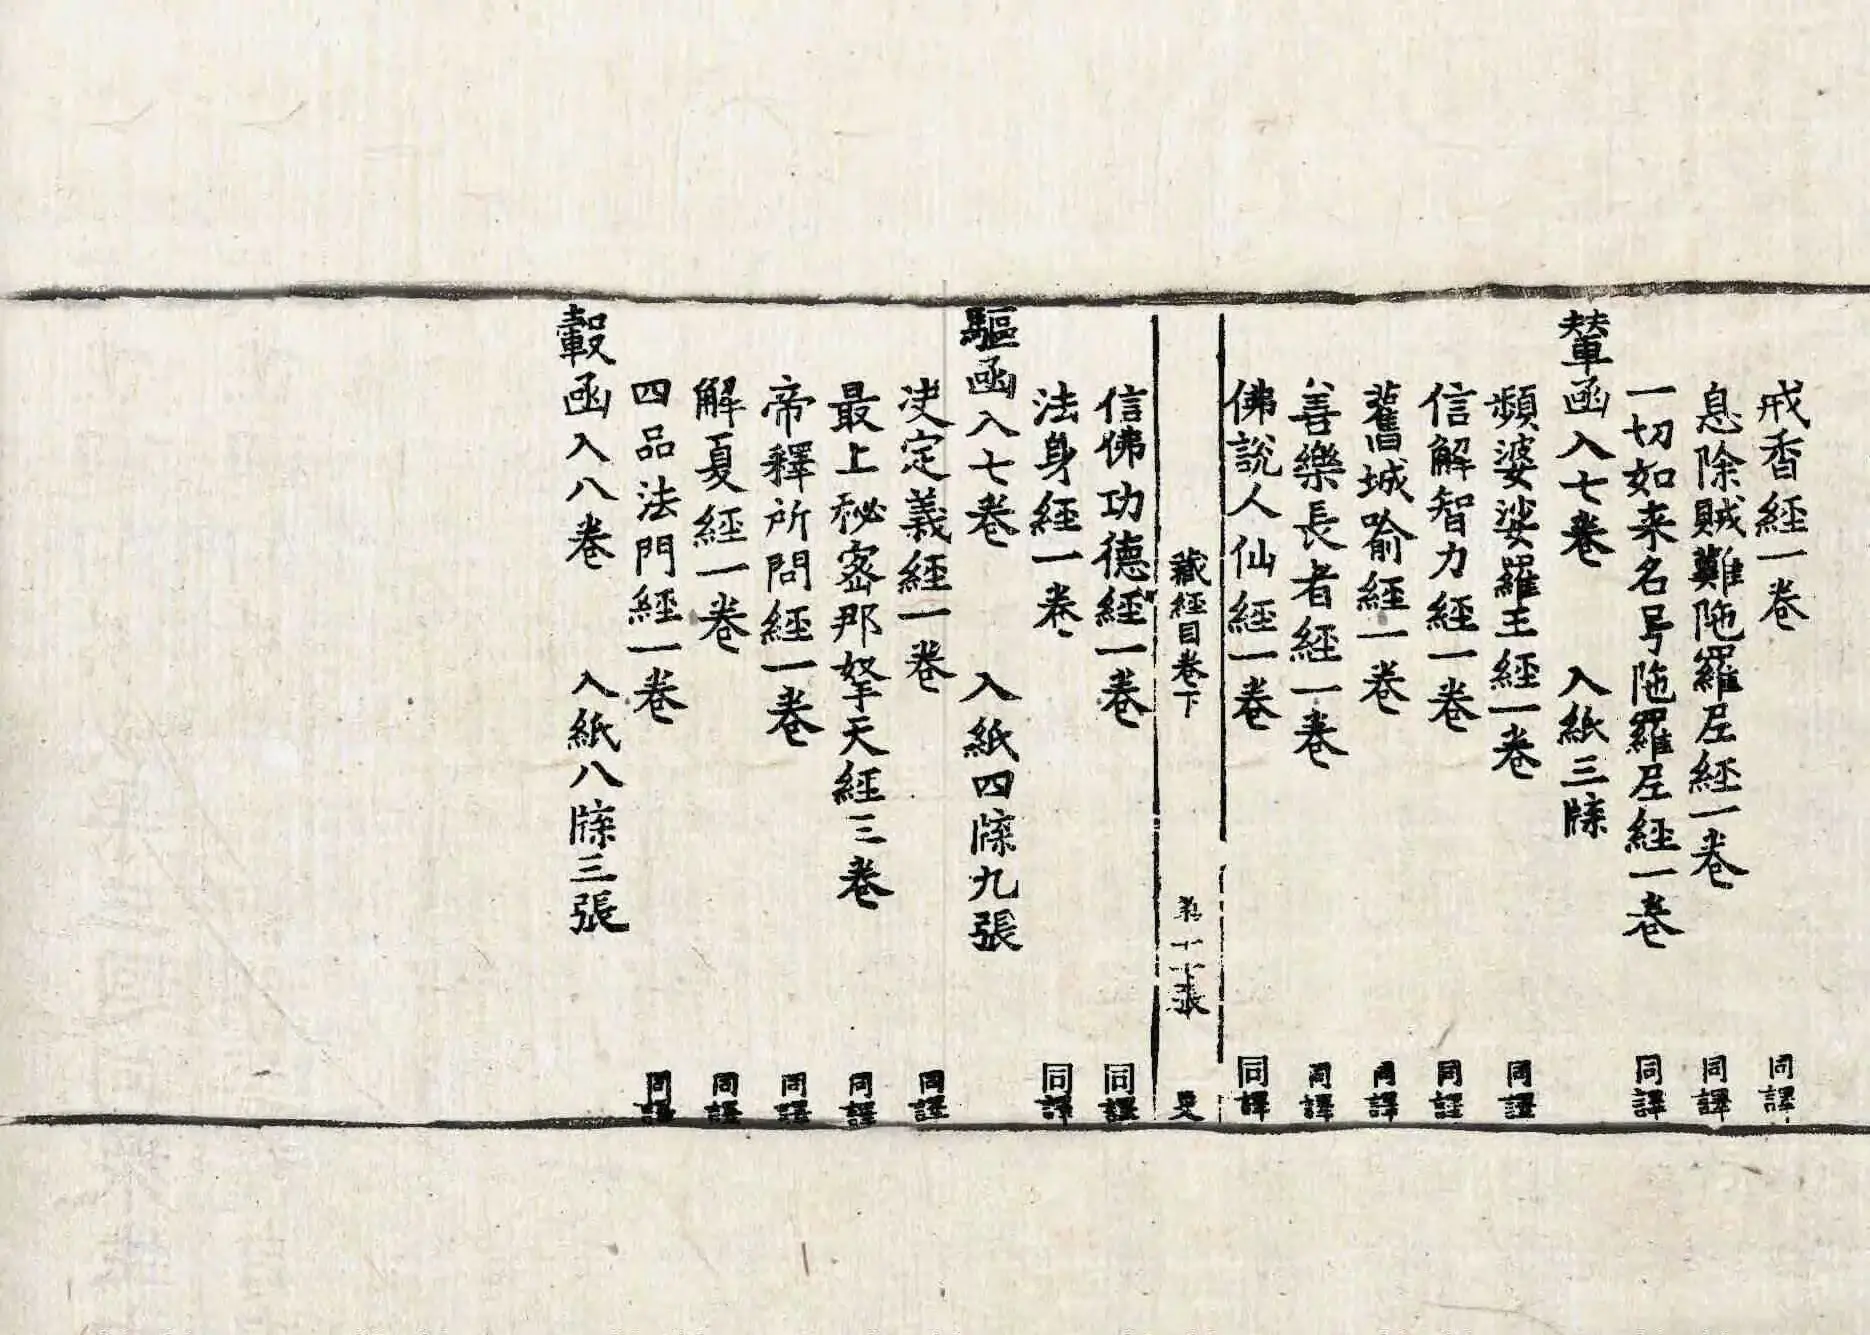 戒香經一卷 同譯
息除賊難陁羅尼經一卷 同譯
一切如来名号陁羅尼經一卷 同譯
輦函入七卷 入紙三牒
頻婆娑羅王經一卷 同譯
信解智力經一卷 同譯
舊城喻經一卷 同譯
善樂長者經一卷 同譯
佛說人仙經一卷 同譯
藏經目卷下 十張
信佛功德經一卷 同譯
法身經一卷 同譯
驅函入七卷 入紙四牒九張
决定義經一卷 同譯
最上秘密那拏天經三卷 同譯
帝釋所問經一卷 同譯
解夏經一卷 同譯
四品法門經一卷 同譯
轂函入八卷 入紙八牒三張